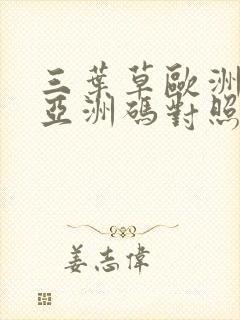 三葉草歐洲
亞洲碼對照
姜志偉